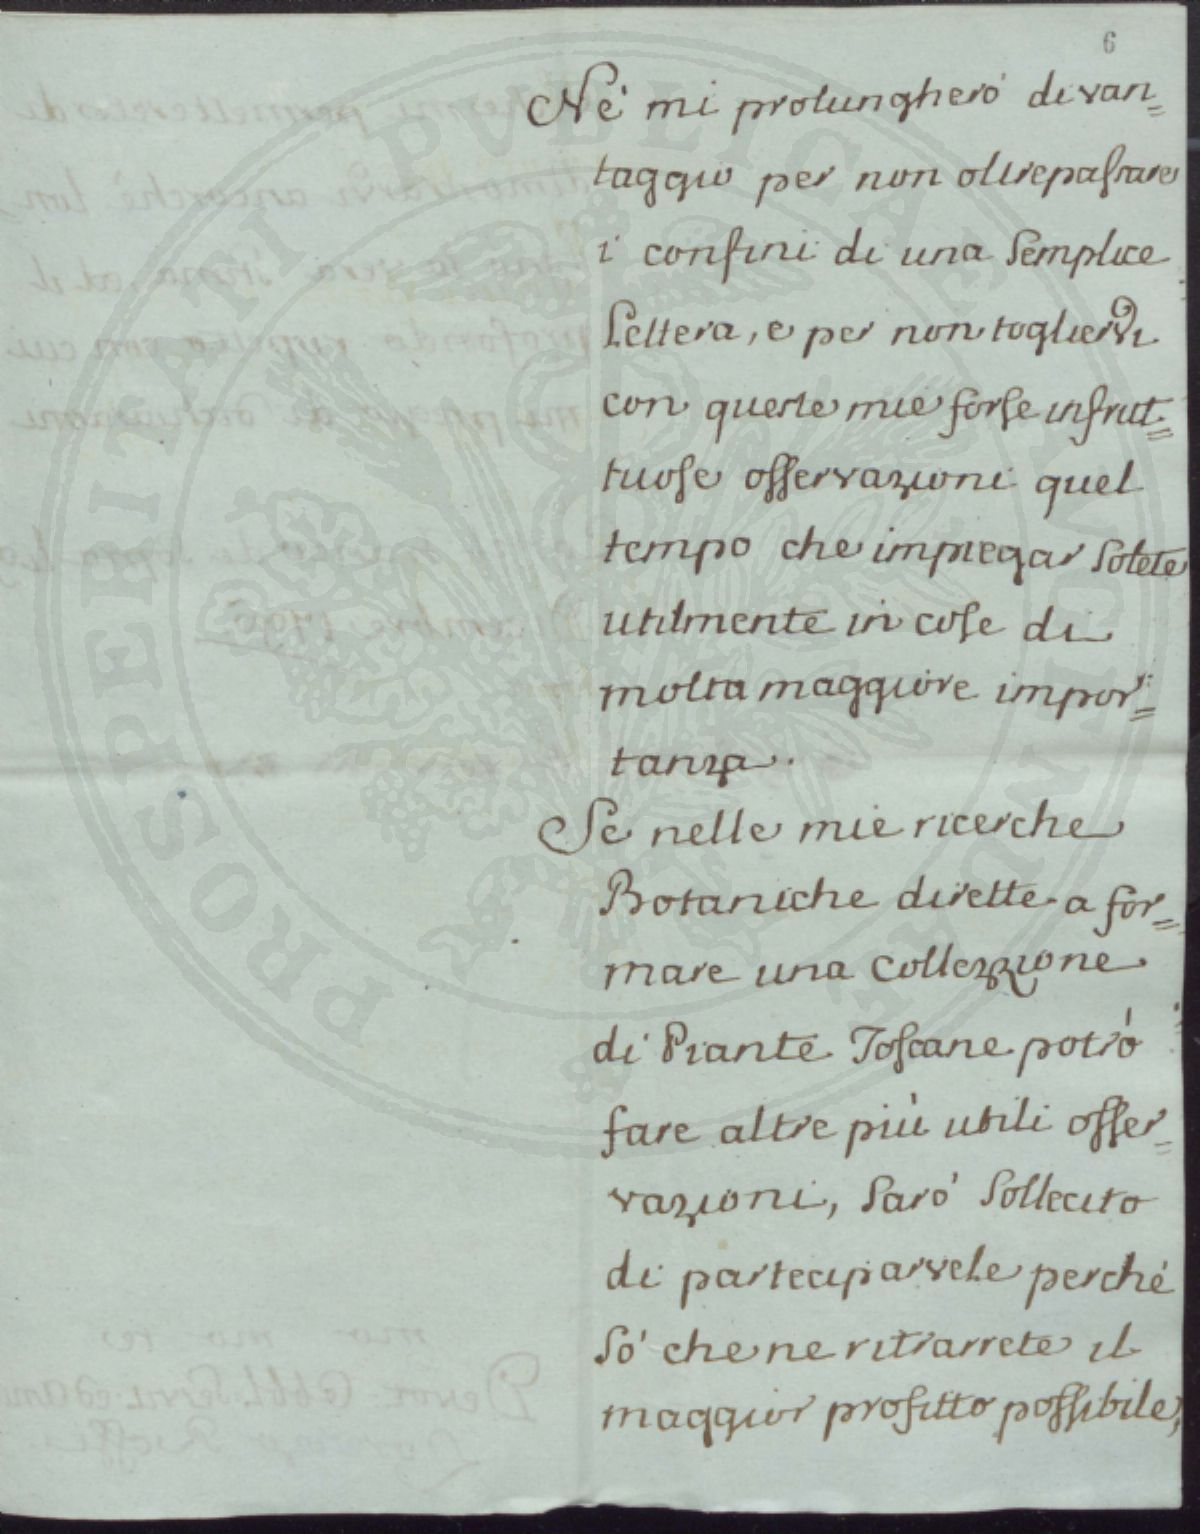 6
Ne' mi prolungherò di van=
taggio per non oltrepassare
i confini di una Semplice
Lettera, e per non toglierVi
con queste mie forse infrut=
tuose osservazioni quel
tempo che impiegar Solete
utilmente in cose di
molta maggiore impor=
tanza.
Se nelle mie ricerche
Botaniche dirette a for=
mare una Collezzione
di Piante Toscane potrò
fare altre più utili osser=
vazioni, Sarò Sollecito
di parteciparvele perché
Sò che ne ritrarrete il
maggior profitto possibile,
PROSPERITATI PUBLICAE